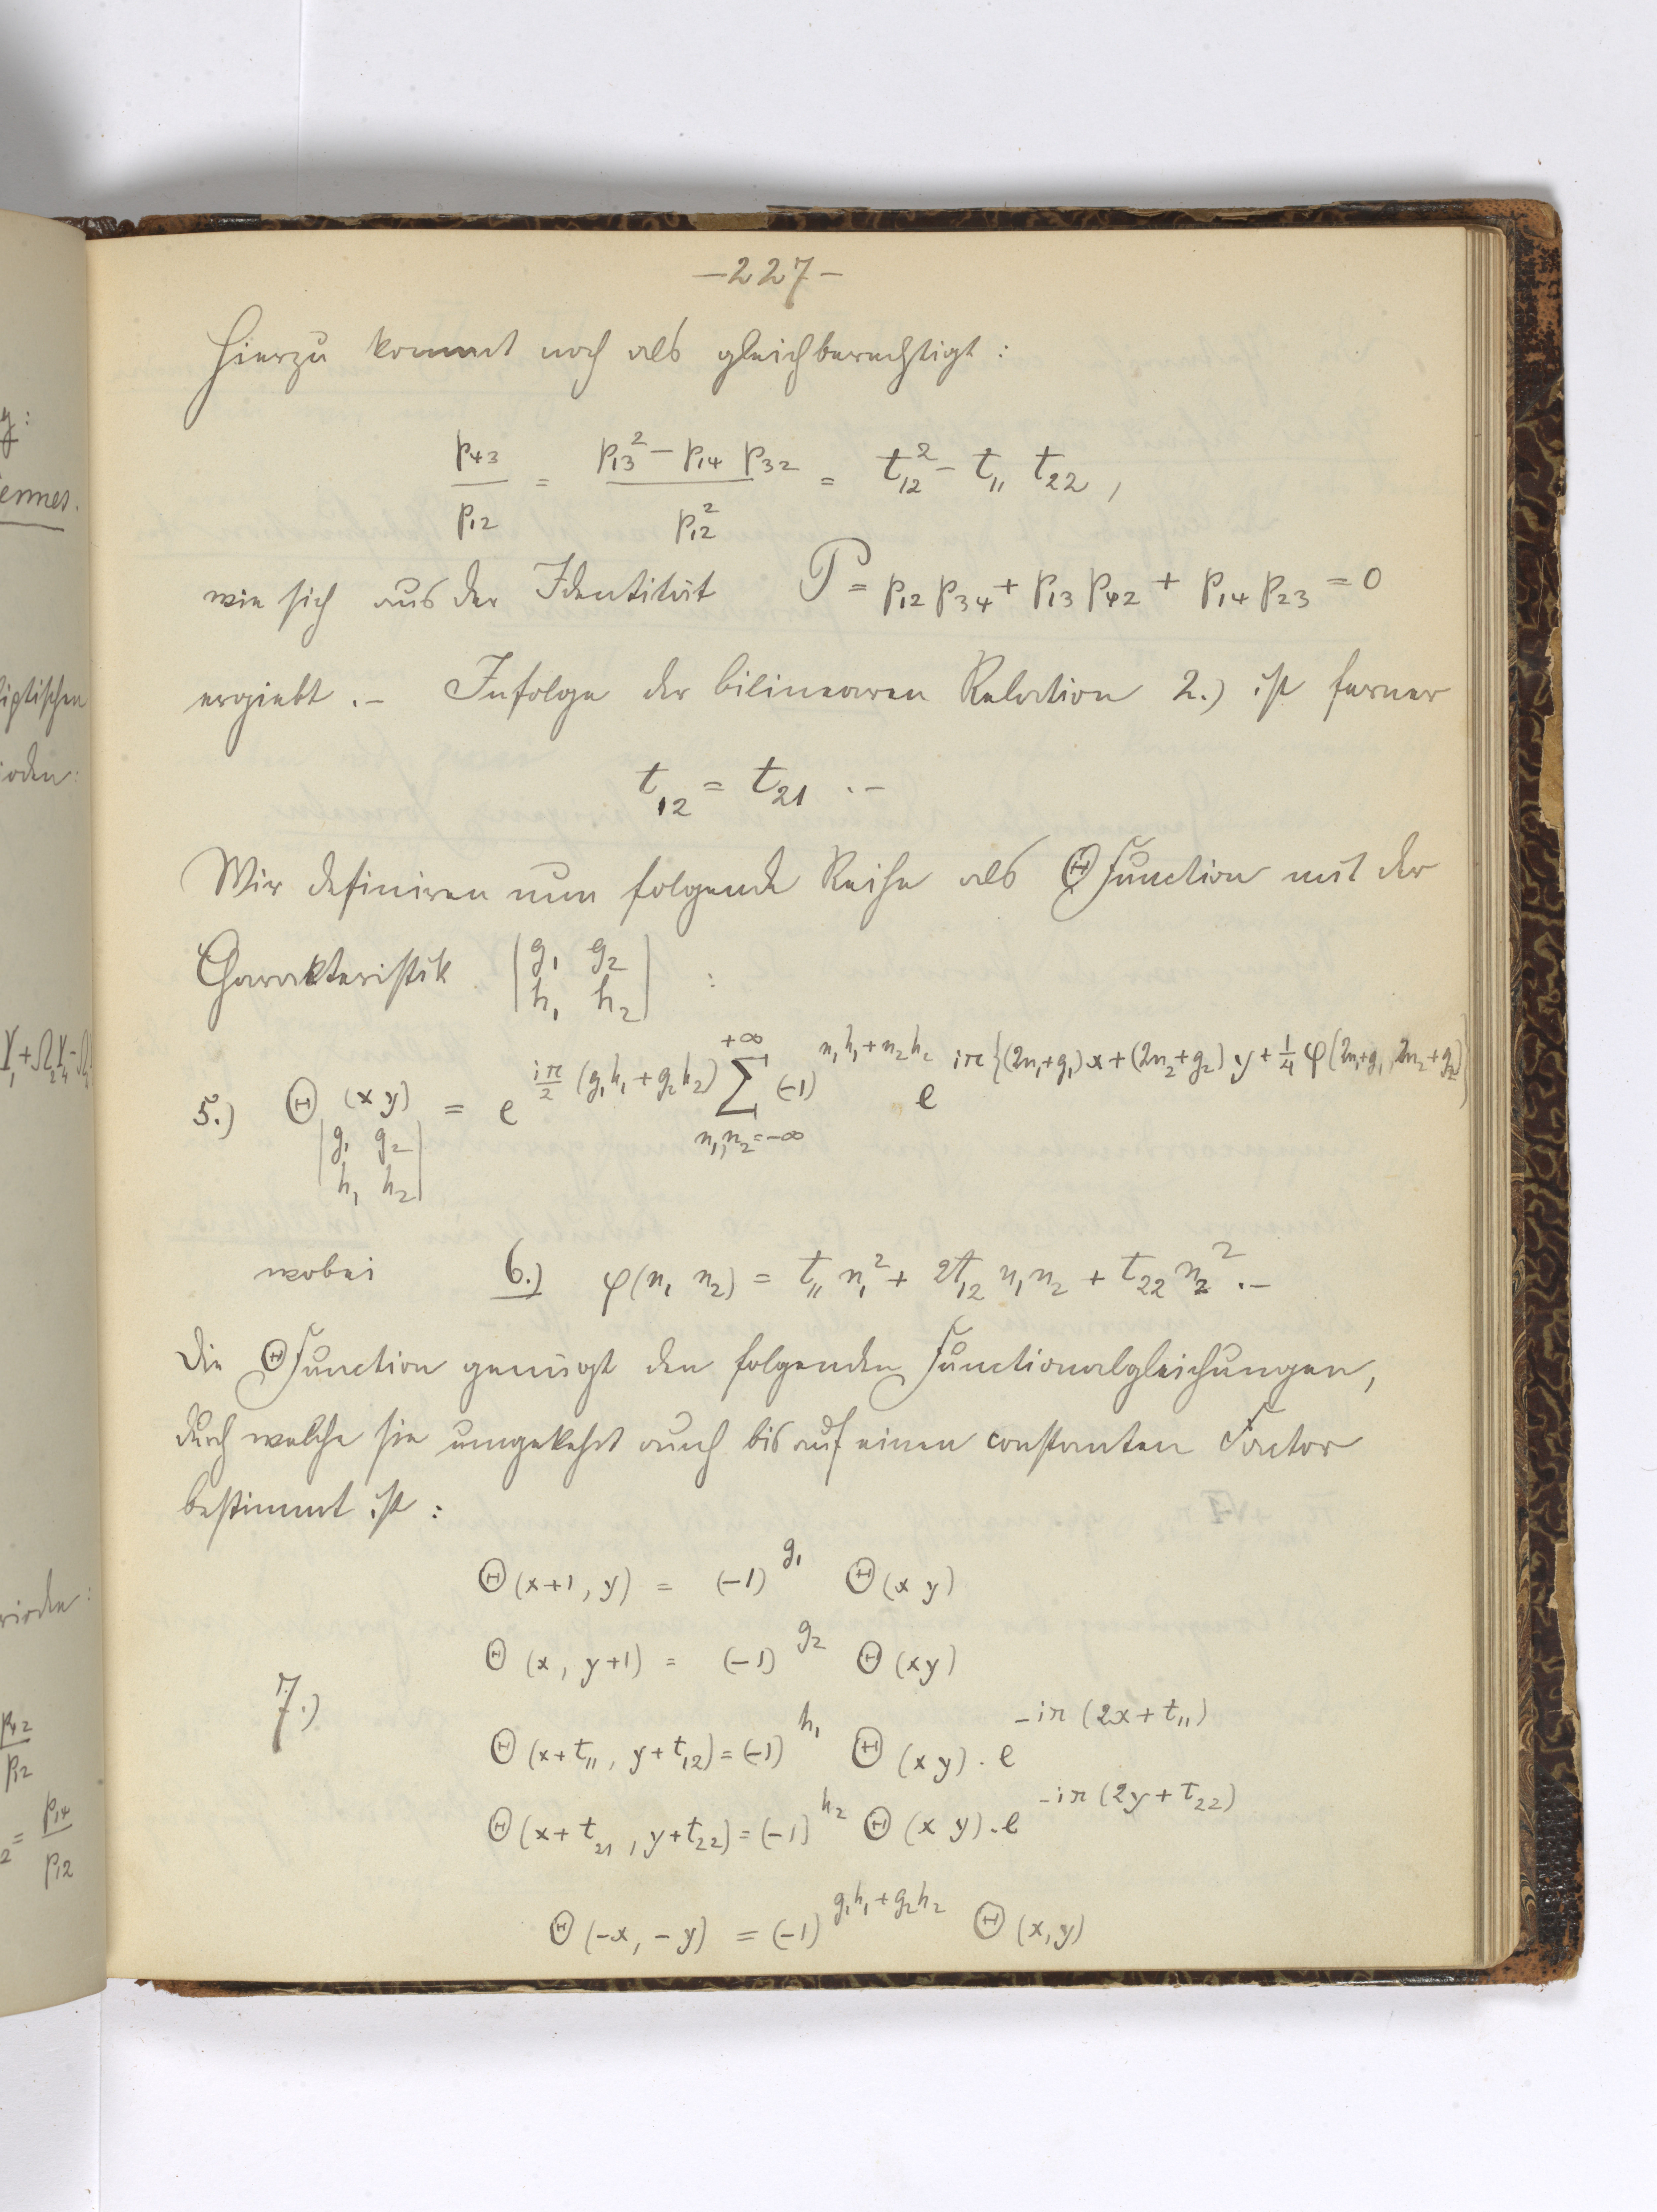 –227–
Hierzu kommt noch als gleichberechtigt:
p₄₃/p₁₂ = (p₁₃² – p₁₄ p₃₂)/p₁₂² = t₁₂² – t₁₁ t₂₂ ,
wie sich aus der Identität P = p₁₂ p₃₄ + p₁₃ p₄₂ + p₁₄ p₂₃ = 0
ergiebt .– Infolge der bilinearen Relation 2.) ist ferner
t₁₂ = t₂₁ .–
Wir definiren nun folgende Reihe als Θfunction mit der
Charakteristik |g₁ g₂ h₁ h₂| :
5.) Θ|g₁ g₂ h₁ h₂| (x y) = e^{iπ/2 (g₁h₁+g₂h₂)} ∑_{n₁,n₂=–∞}^{+∞} (–1)^{n₁h₁+n₂h₂} e^{iπ{(2n₁+g₁)x+(2n₂+g₂)y+¼φ(2n₁+g₁, 2n₂+g₂)}}
wobei 6.) φ(n₁ n₂) = t₁₁ n₁² + 2t₁₂ n₁n₂ + t₂₂ n₂² .–
Die Θfunction genügt den folgenden Functionalgleichungen,
durch welche sie umgekehrt auch bis auf einen constanten Factor
bestimmt ist :
Θ(x+1, y) = (–1)^{g₁} Θ(x y)
Θ(x, y+1) = (–1)^{g₂} Θ(xy)
7.)
Θ(x+t₁₁, y+t₁₂) = (–1)^{h₁} Θ(xy) . e^{–iπ(2x+t₁₁)}
Θ(x+t₂₁, y+t₂₂) = (–1)^{h₂} Θ(x y) . e^{–iπ(2y+t₂₂)}
Θ(–x, –y) = (–1)^{g₁h₁+g₂h₂} Θ(x,y)